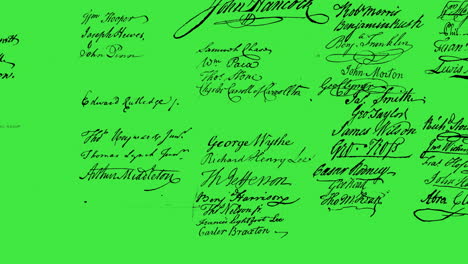 Wm Hooper
Joseph Hewes,
John Penn
Edward Rutledge /.
Thos Heyward Junr.
Thomas Lynch Junr.
Arthur Middleton
John Hancock
Samuel Chase
Wm Paca
Thos Stone
Charles Carroll of Carrollton
George Wythe
Richard Henry Lee
Th Jefferson
Benj Harrison
Thos Nelson jr.
Francis Lightfoot Lee
Carter Braxton
Robt Morris
Benjamin Rush
Benj. Franklin
John Morton
Geo Clymer
Jas. Smith
Geo. Taylor
James Wilson
Geo. Ross
Caesar Rodney
Geo Read
Tho M:Kean
Lewis